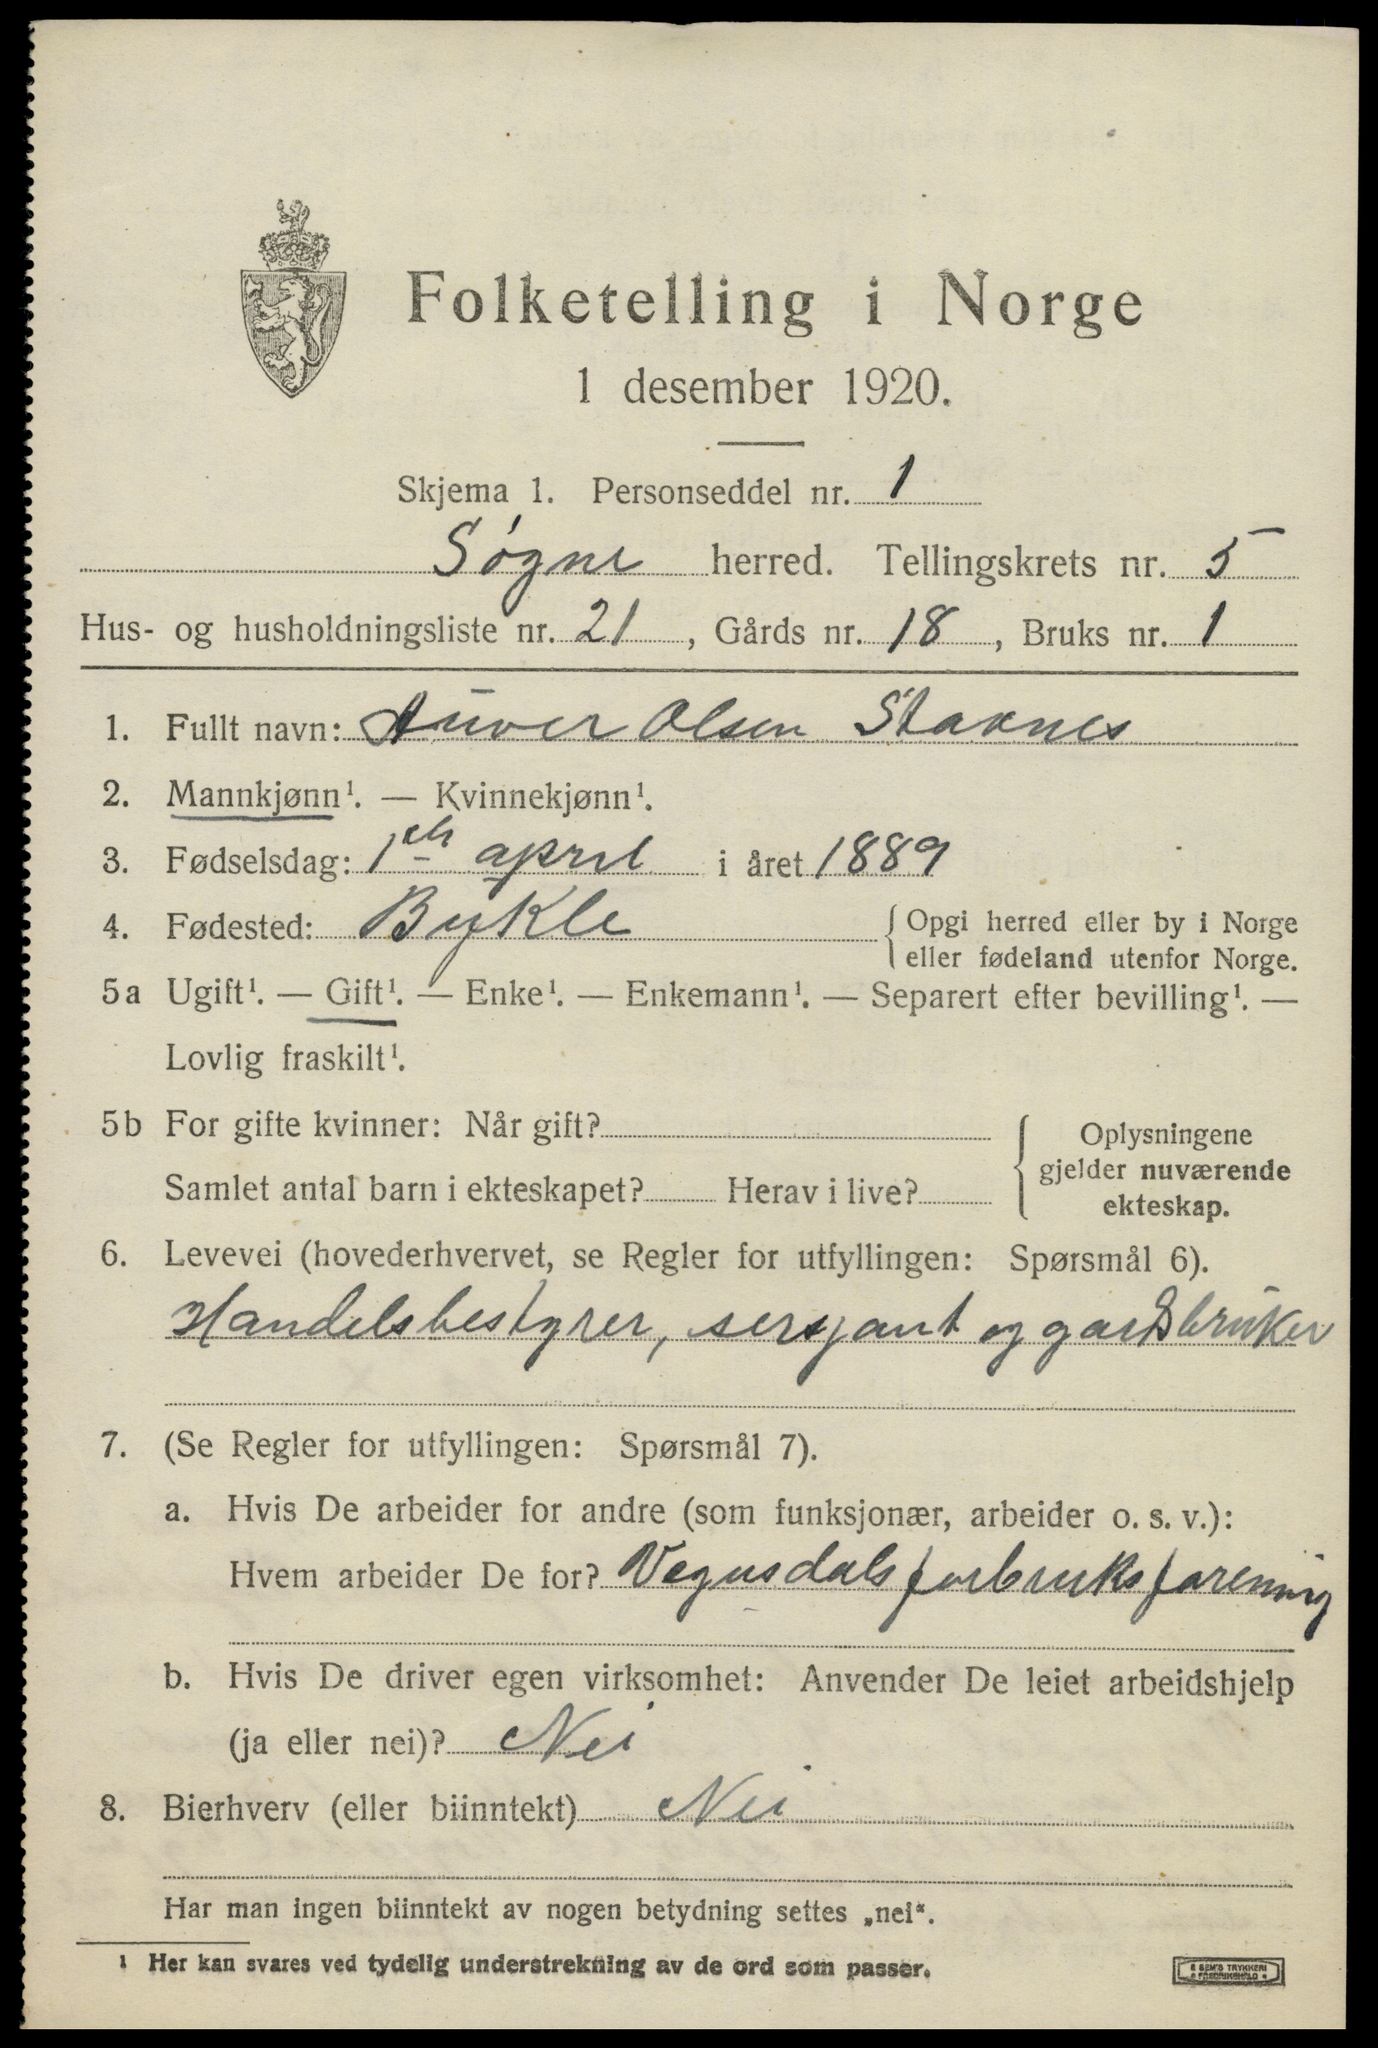 Folketelling i Norge
1 desember 1920.
Skjema 1. Personseddel nr. 1
Søgne herred. Tellingskrets nr. 5
Hus- og husholdningsliste nr. 21, Gårds nr. 18, Bruks nr. 1
1. Fullt navn: Olsen Stavnes
2. Mannkjønn¹. — Kvinnekjønn¹.
3. Fødselsdag: 1ste april i året 1889
4. Fødested: Bykle { Opgi herred eller by i Norge
eller fødeland utenfor Norge.
5a Ugift¹. — Gift¹. — Enke¹. — Enkemann¹. — Separert efter bevilling¹. —
Lovlig fraskilt¹.
5b For gifte kvinner: Når gift?
Samlet antal barn i ekteskapet? Herav i live?
{ Oplysningene
gjelder nuværende
ekteskap.
6. Levevei (hovederhvervet, se Regler for utfyllingen: Spørsmål 6).
Handelsbestyrer, sersjant og gardsbruker
7. (Se Regler for utfyllingen: Spørsmål 7).
a. Hvis De arbeider for andre (som funksjonær, arbeider o. s. v.):
Hvem arbeider De for? Vegusdals forbruksforening
b. Hvis De driver egen virksomhet: Anvender De leiet arbeidshjelp
(ja eller nei)? Nei
8. Bierhverv (eller biinntekt) Nei
Har man ingen biinntekt av nogen betydning settes „nei“.
¹ Her kan svares ved tydelig understrekning av de ord som passer.
SEM'S TRYKKERI
FREDRIKSHALD